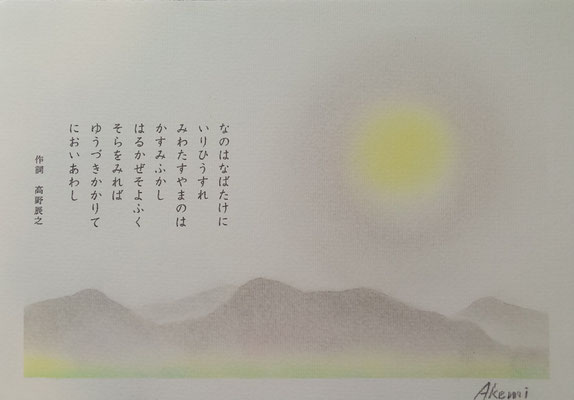 なのはなばたけに
いりひうすれ
みわたすやまのは
かすみふかし
はるかぜそよふく
そらをみれば
ゆうづきかかりて
においあわし
作詞 高野辰之
Akemi